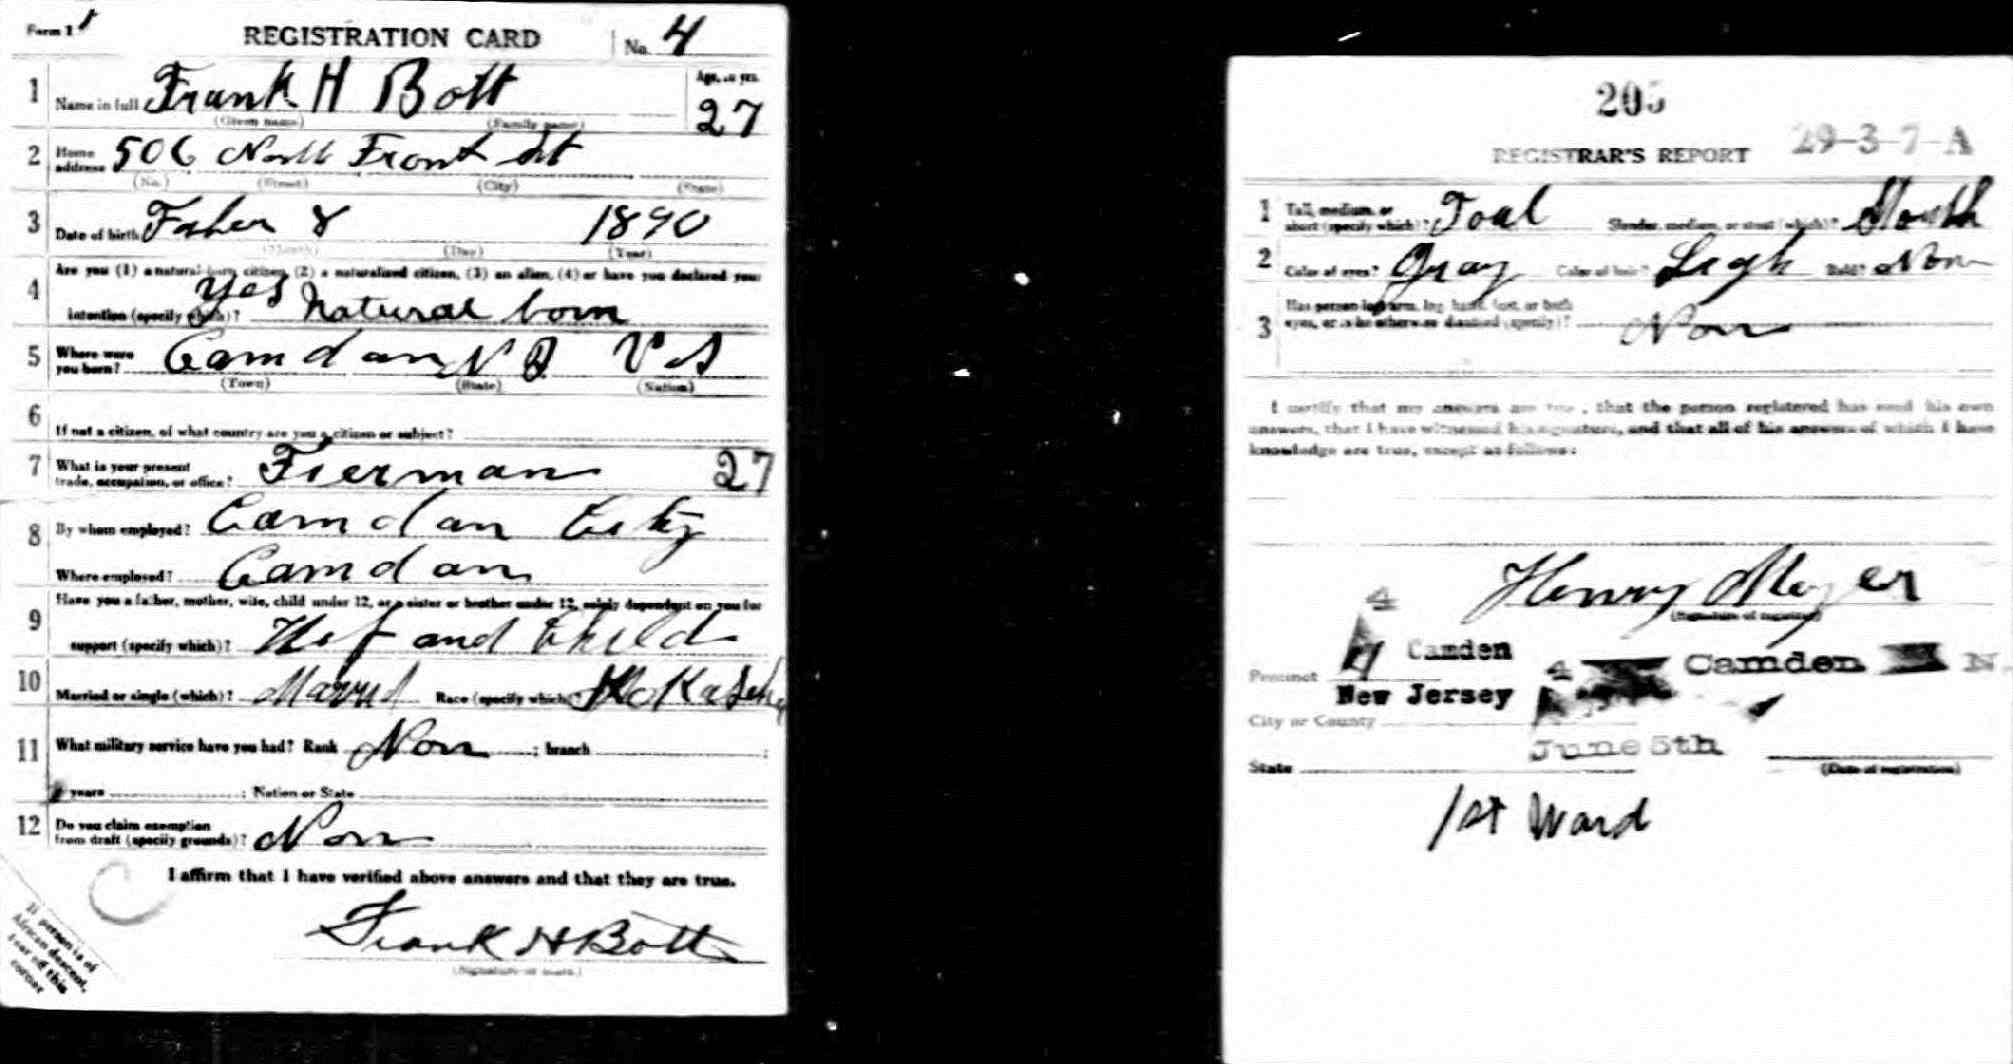 Form 1
REGISTRATION CARD No. 4
1 Name in full Frank H Bott Age, in yrs. 27
(Given name) (Family name)
2 Home address 506 North Front St
(No.) (Street) (City) (State)
3 Date of birth 8 1890
(Month) (Day) (Year)
4 Are you (1) a natural-born citizen, (2) a naturalized citizen, (3) an alien, (4) or have you declared your
intention (specify which)? yes Natural born
5 Where were you born? Camdan N J U S
(Town) (State) (Nation)
6 If not a citizen, of what country are you a citizen or subject?
7 What is your present trade, occupation, or office? Fierman 27
8 By whom employed? Camdan City
Where employed? Camdan
9 Have you a father, mother, wife, child under 12, or a sister or brother under 12, solely dependent on you for
support (specify which)? and Child
10 Married or single (which)? Race (specify which)?
11 What military service have you had? Rank Non ; branch ;
years ; Nation or State
12 Do you claim exemption from draft (specify grounds)? Non
I affirm that I have verified above answers and that they are true.
Frank H Bott
If person is of
African descent,
tear off this
corner
205
REGISTRAR'S REPORT 29-3-7-A
1 Tall, medium, or short (specify which)? Toal Slender, medium, or stout (which)?
2 Color of eyes? Gray Color of hair? Bald? Non
3 Has person lost arm, leg, hand, foot, or both
eyes, or is he otherwise disabled (specify)? Non
I certify that my answers are true, that the person registered has read his own
answers, that I have witnessed his signature, and that all of his answers of which I have
knowledge are true, except as follows:
Henry Meyer
(Signature of registrar)
4
Precinct 4 Camden 4 Camden N
New Jersey
City or County
June 5th
State (Date of registration)
1st Ward